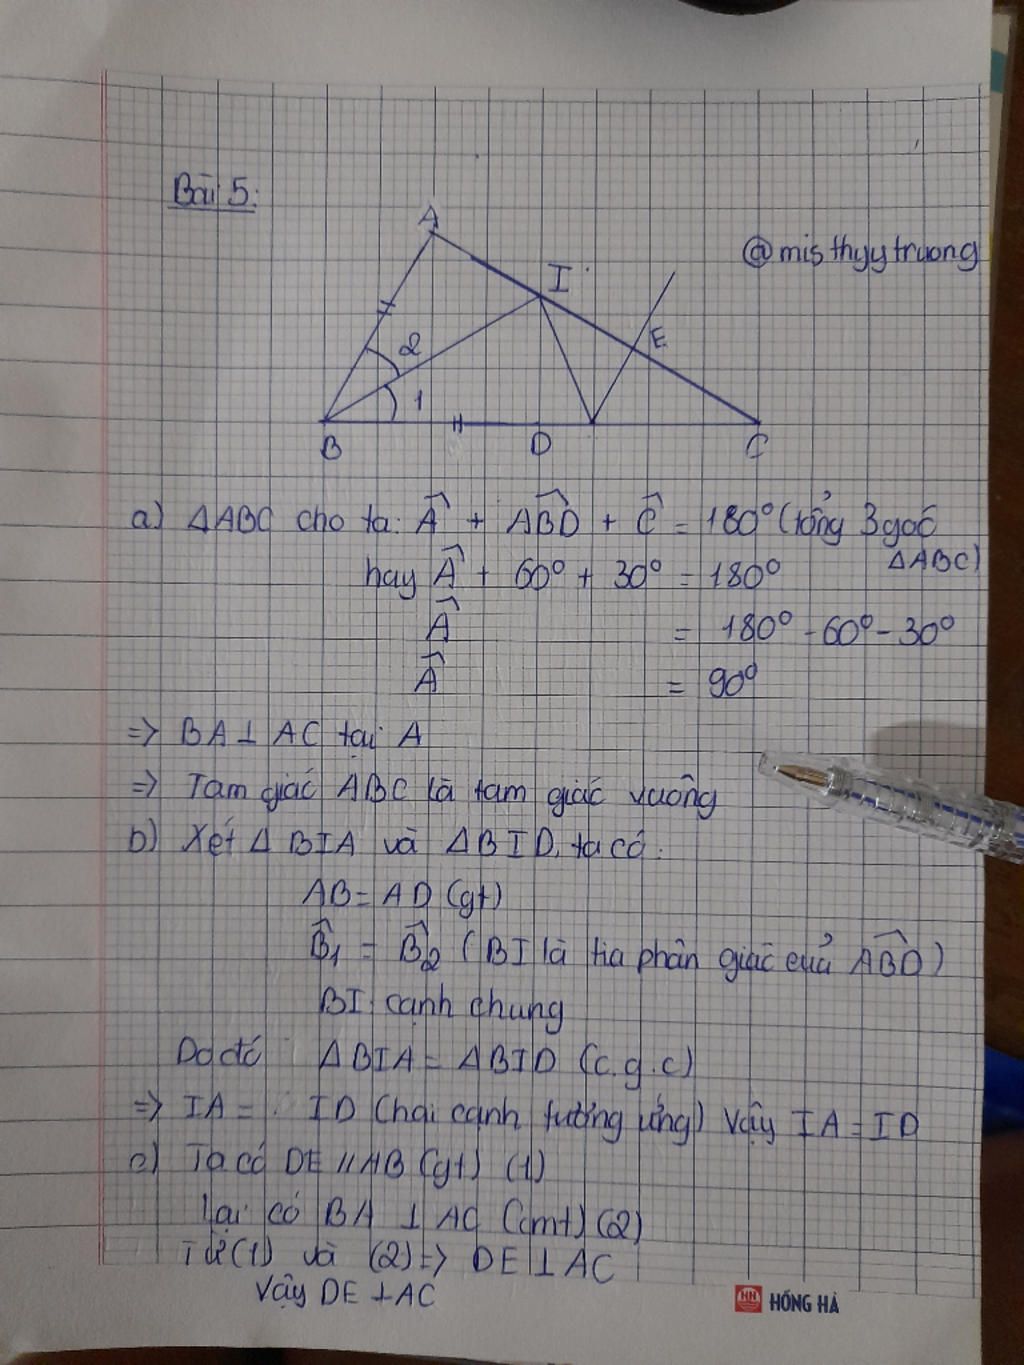 Bài 5:
A
@misthyytruong
I
E
2
1
B
D
C
a) ΔABC cho ta: Â + ABD̂ + Ĉ = 180° (tổng 3 góc
ΔABC)
hay Â + 60° + 30° = 180°
Â = 180° - 60° - 30°
Â = 90°
=> BA ⊥ AC tại A
=> Tam giác ABC là tam giác vuông
b) Xét Δ BIA và ΔBID, ta có:
AB = AD (gt)
B̂1 = B̂2 (BI là tia phân giác của ABD̂)
BI: cạnh chung
Do đó: ΔBIA = ΔBID (c.g.c)
=> IA = ID (hai cạnh tương ứng) Vậy IA = ID
c) Ta có DE // AB (gt) (1)
Lại có BA ⊥ AC (cmt) (2)
Từ (1) và (2) => DE ⊥ AC
Vậy DE ⊥ AC
HN HỒNG HÀ